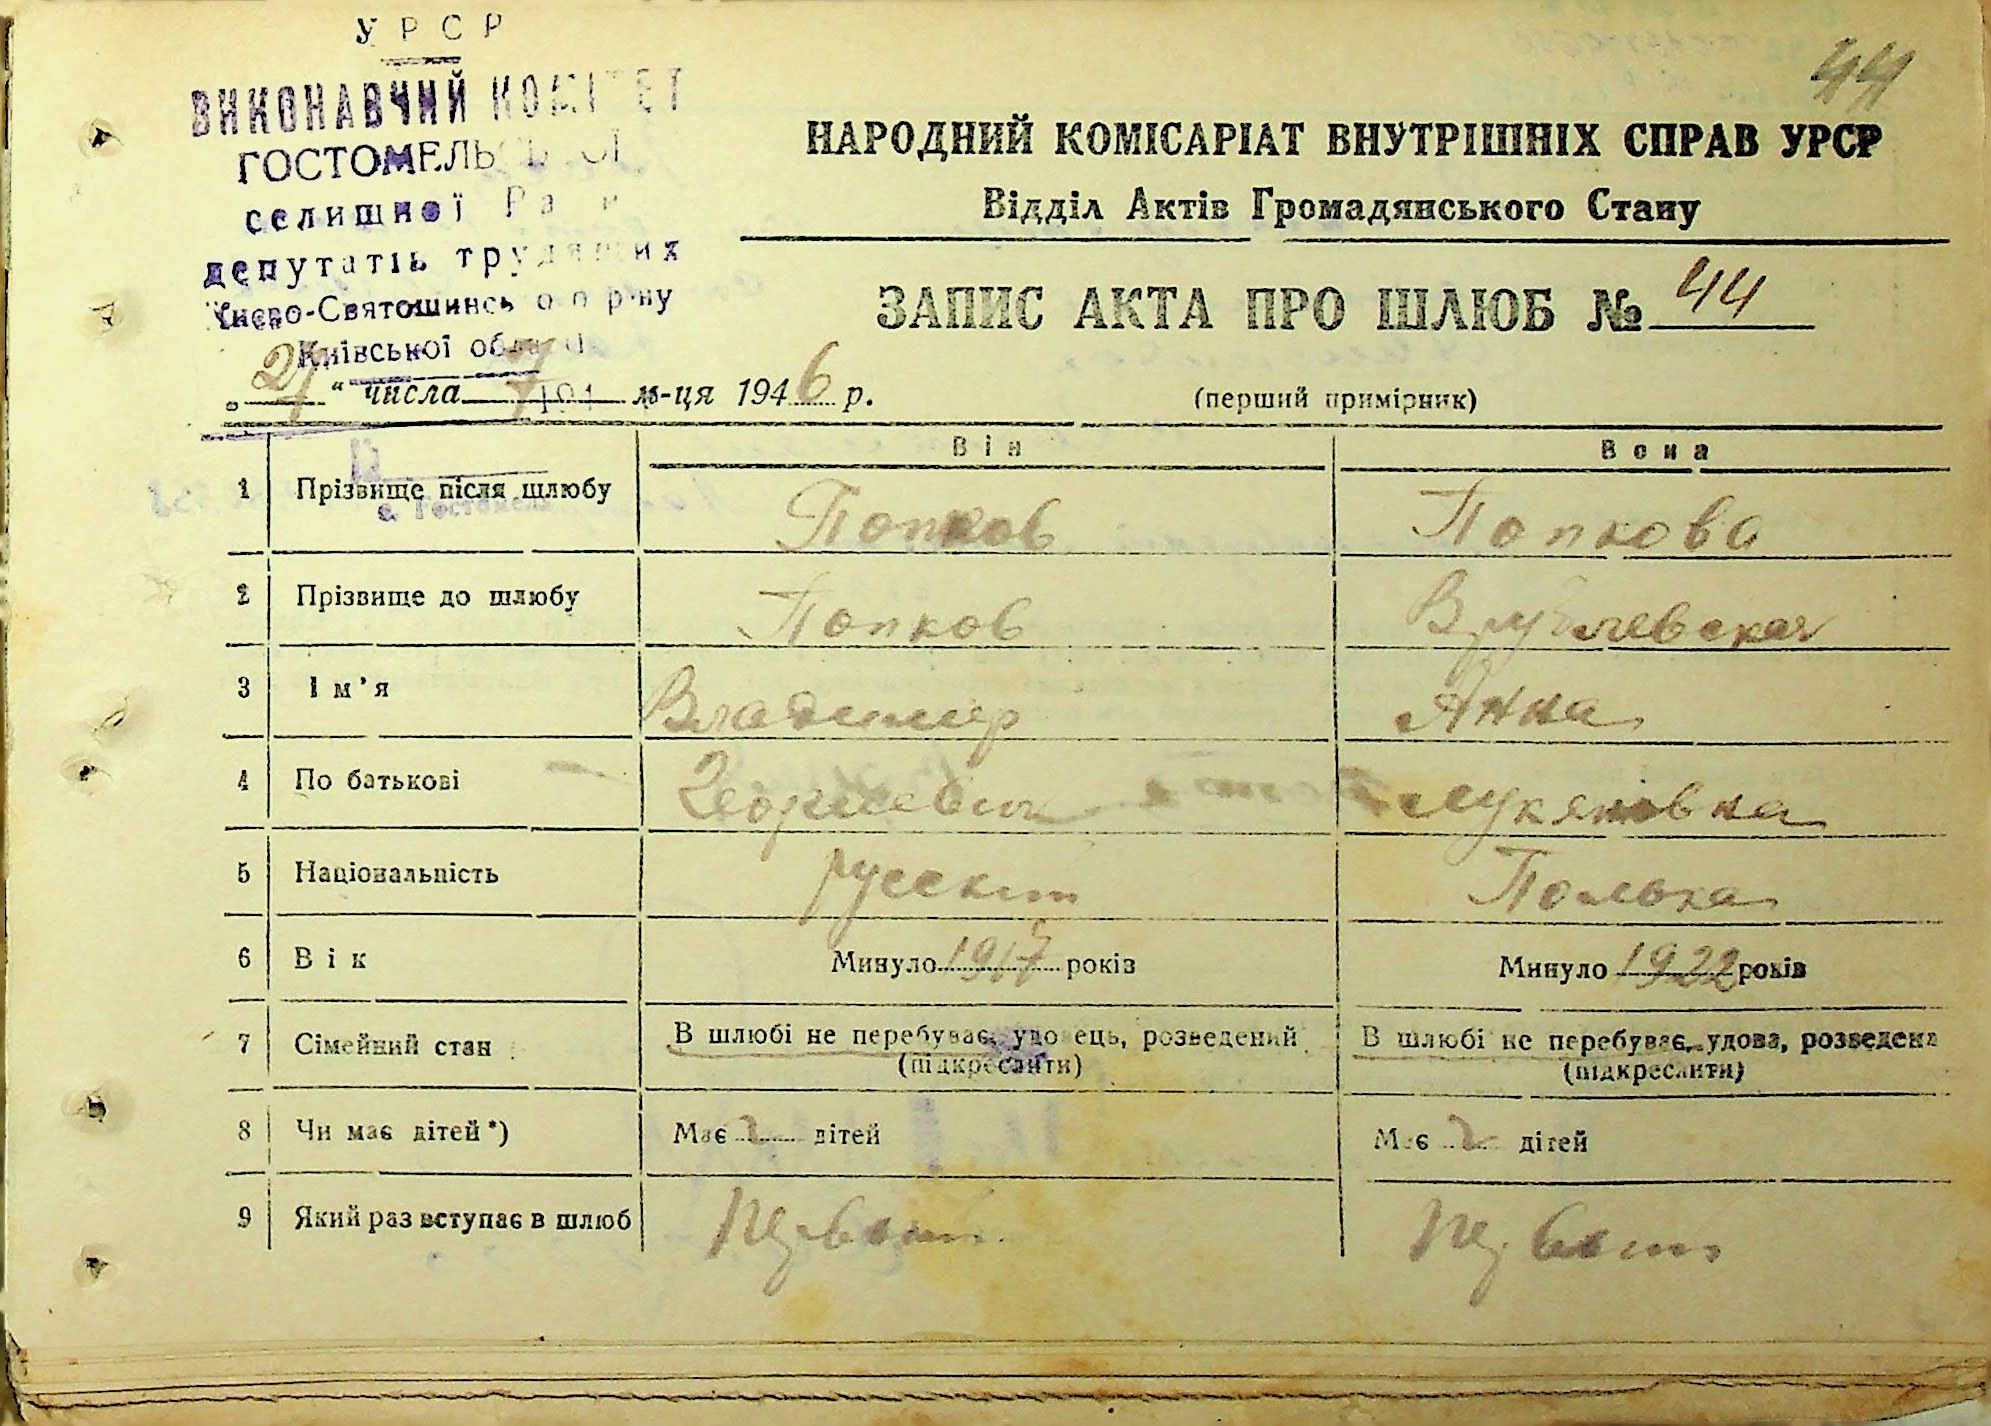 44
УРСР
ВИКОНАВЧИЙ КОМІТЕТ
ГОСТОМЕЛЬСЬКОЇ
селищної Ради
депутатів трудящих
Києво-Святошинського р-ну
Київської області
НАРОДНИЙ КОМІСАРІАТ ВНУТРІШНІХ СПРАВ УРСР
Відділ Актів Громадянського Стану
ЗАПИС АКТА ПРО ШЛЮБ № 44
„27“ числа 7 м-ця 1946 р.
(перший примірник)
с. Гостомель
Він Вона
1 Прізвище після шлюбу Попков Попкова
2 Прізвище до шлюбу Попков Врублевская
3 Ім'я Владимир Анна
4 По батькові Георгиевич Лукяновна
5 Національність русский Полька
6 Вік Минуло 1917 років Минуло 1922 років
7 Сімейний стан В шлюбі не перебуває, удовець, розведений В шлюбі не перебуває, удова, розведена
(підкреслити) (підкреслити)
8 Чи має дітей*) Має 2 дітей Має 2 дітей
9 Який раз вступає в шлюб Первый Первый